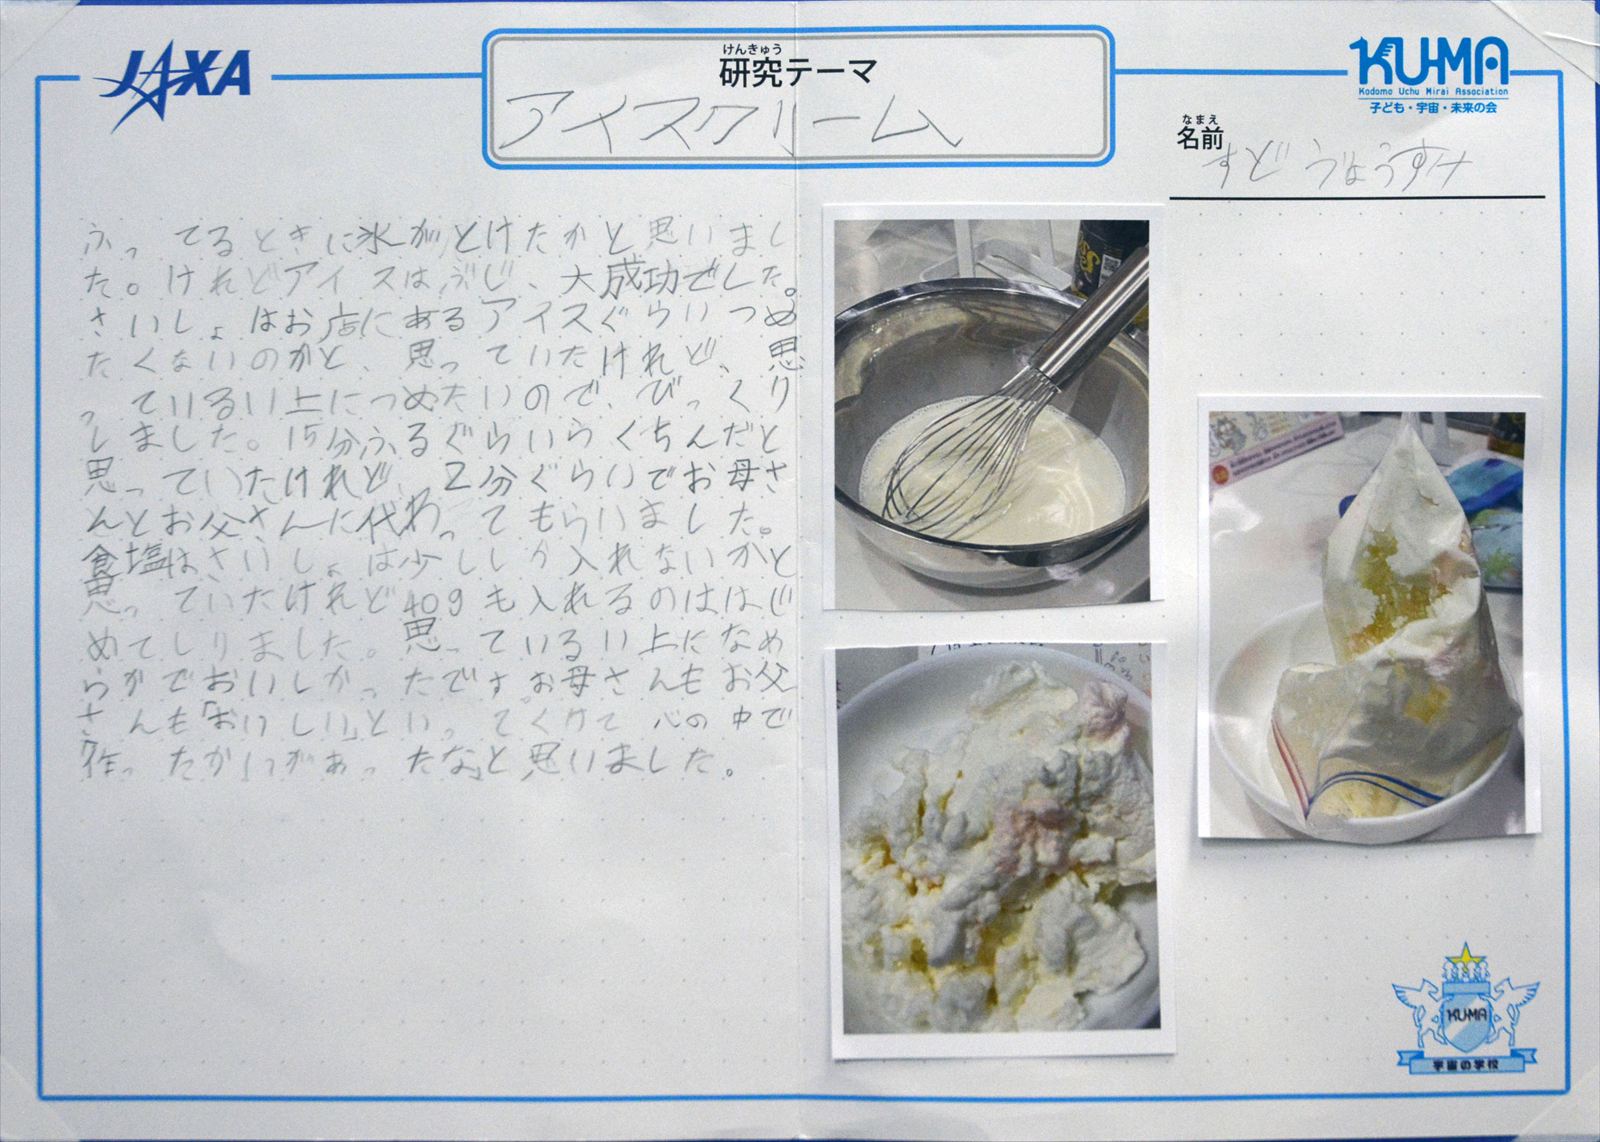 JAXA
けんきゅう
研究テーマ
アイスクリーム
KU-MA
Kodomo Uchu Mirai Association
子ども・宇宙・未来の会
なまえ
名前
すどう りょうすけ
ふってるときに氷がとけたかと思いまし
た。けれどアイスはぶじ、大成功でした。
さいしょはお店にあるアイスぐらいつめ
たくないのかと、思っていたけれど、思
っているい上につめたいので、びっくり
しました。15分ふるぐらいらくちんだと
思っていたけれど、2分ぐらいでお母さ
んとお父さんに代わってもらいました。
食塩はさいしょは少ししか入れないかと
思っていたけれど40gも入れるのははじ
めてしりました。思っているい上になめ
らかでおいしかったです。お母さんもお父
さんも「おいしい」といってくれて心の中で
「作ったかいがあったな」と思いました。
KU-MA
宇宙の学校